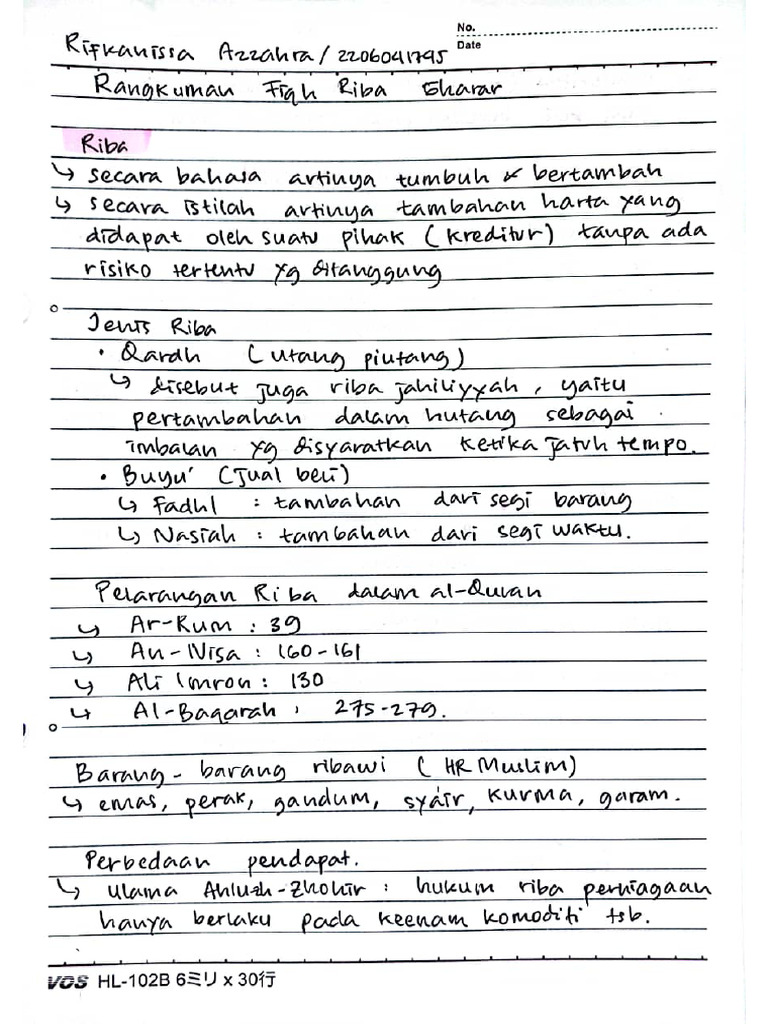 No.
Rifkanissa Azzahra / 2206041795
Date
Rangkuman Fiqh Riba Gharar
Riba
↳ secara bahasa artinya tumbuh & bertambah
↳ secara istilah artinya tambahan harta yang
didapat oleh suatu pihak (kreditur) tanpa ada
risiko tertentu yg ditanggung
Jenis Riba
• Qardh (utang piutang)
↳ disebut juga riba jahiliyyah, yaitu
pertambahan dalam hutang sebagai
imbalan yg disyaratkan ketika jatuh tempo.
• Buyu' (Jual beli)
↳ Fadhl : tambahan dari segi barang
↳ Nasiah : tambahan dari segi waktu.
Pelarangan Riba dalam al-Quran
↳ Ar-Rum : 39
↳ An-Nisa : 160-161
↳ Ali Imron : 130
↳ Al-Baqarah : 275-279.
Barang-barang ribawi (HR Muslim)
↳ emas, perak, gandum, sya'ir, kurma, garam.
Perbedaan pendapat.
↳ ulama Ahluzh-Zhohir : hukum riba perniagaan
hanya berlaku pada keenam komoditi tsb.
VOS HL-102B 6ミリ x 30行